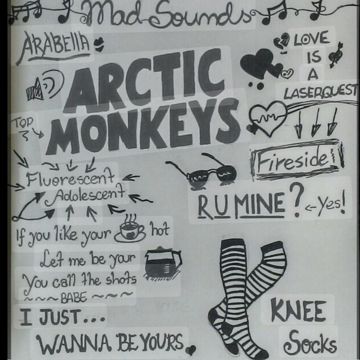 Mad Sounds
ARABELLA
LOVE
IS
A
LASERQUEST
ARCTIC
MONKEYS
TOP
3
Fireside!
Fluorescent
Adolescent
R U MINE? Yes!
If you like your hot
Let me be your
You call the shots
~~~ BABE ~~~
I JUST...
WANNA BE YOURS
KNEE
Socks